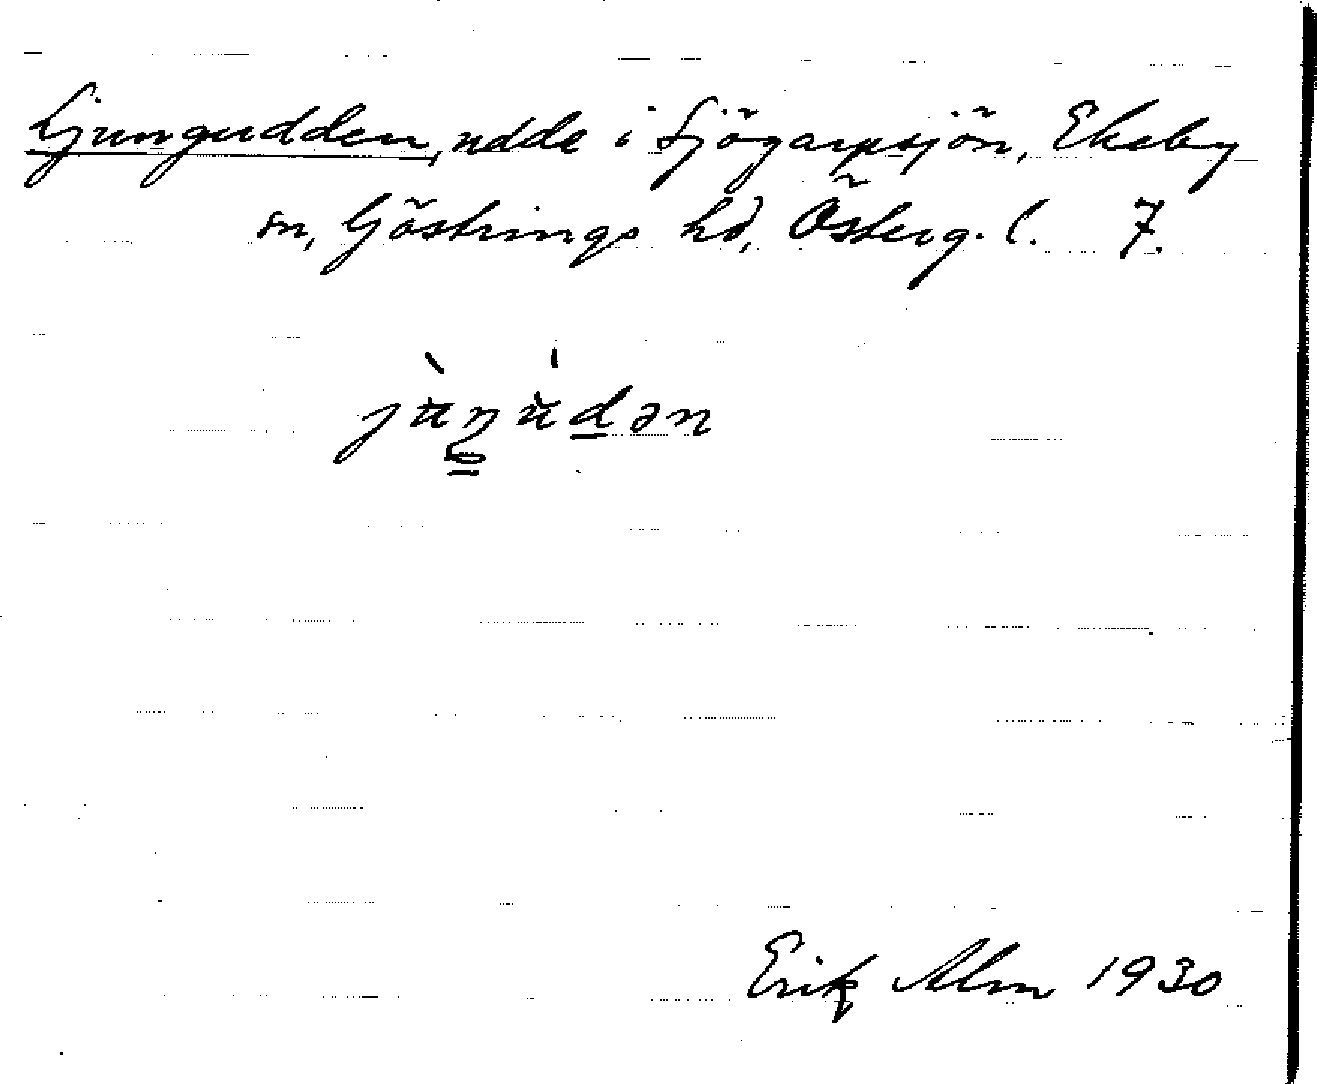 Ljungudden, udde i Sjögarpsjön, Ekeby
sn, Göstrings hd, Österg. l. 7.
Erik Alm 1930